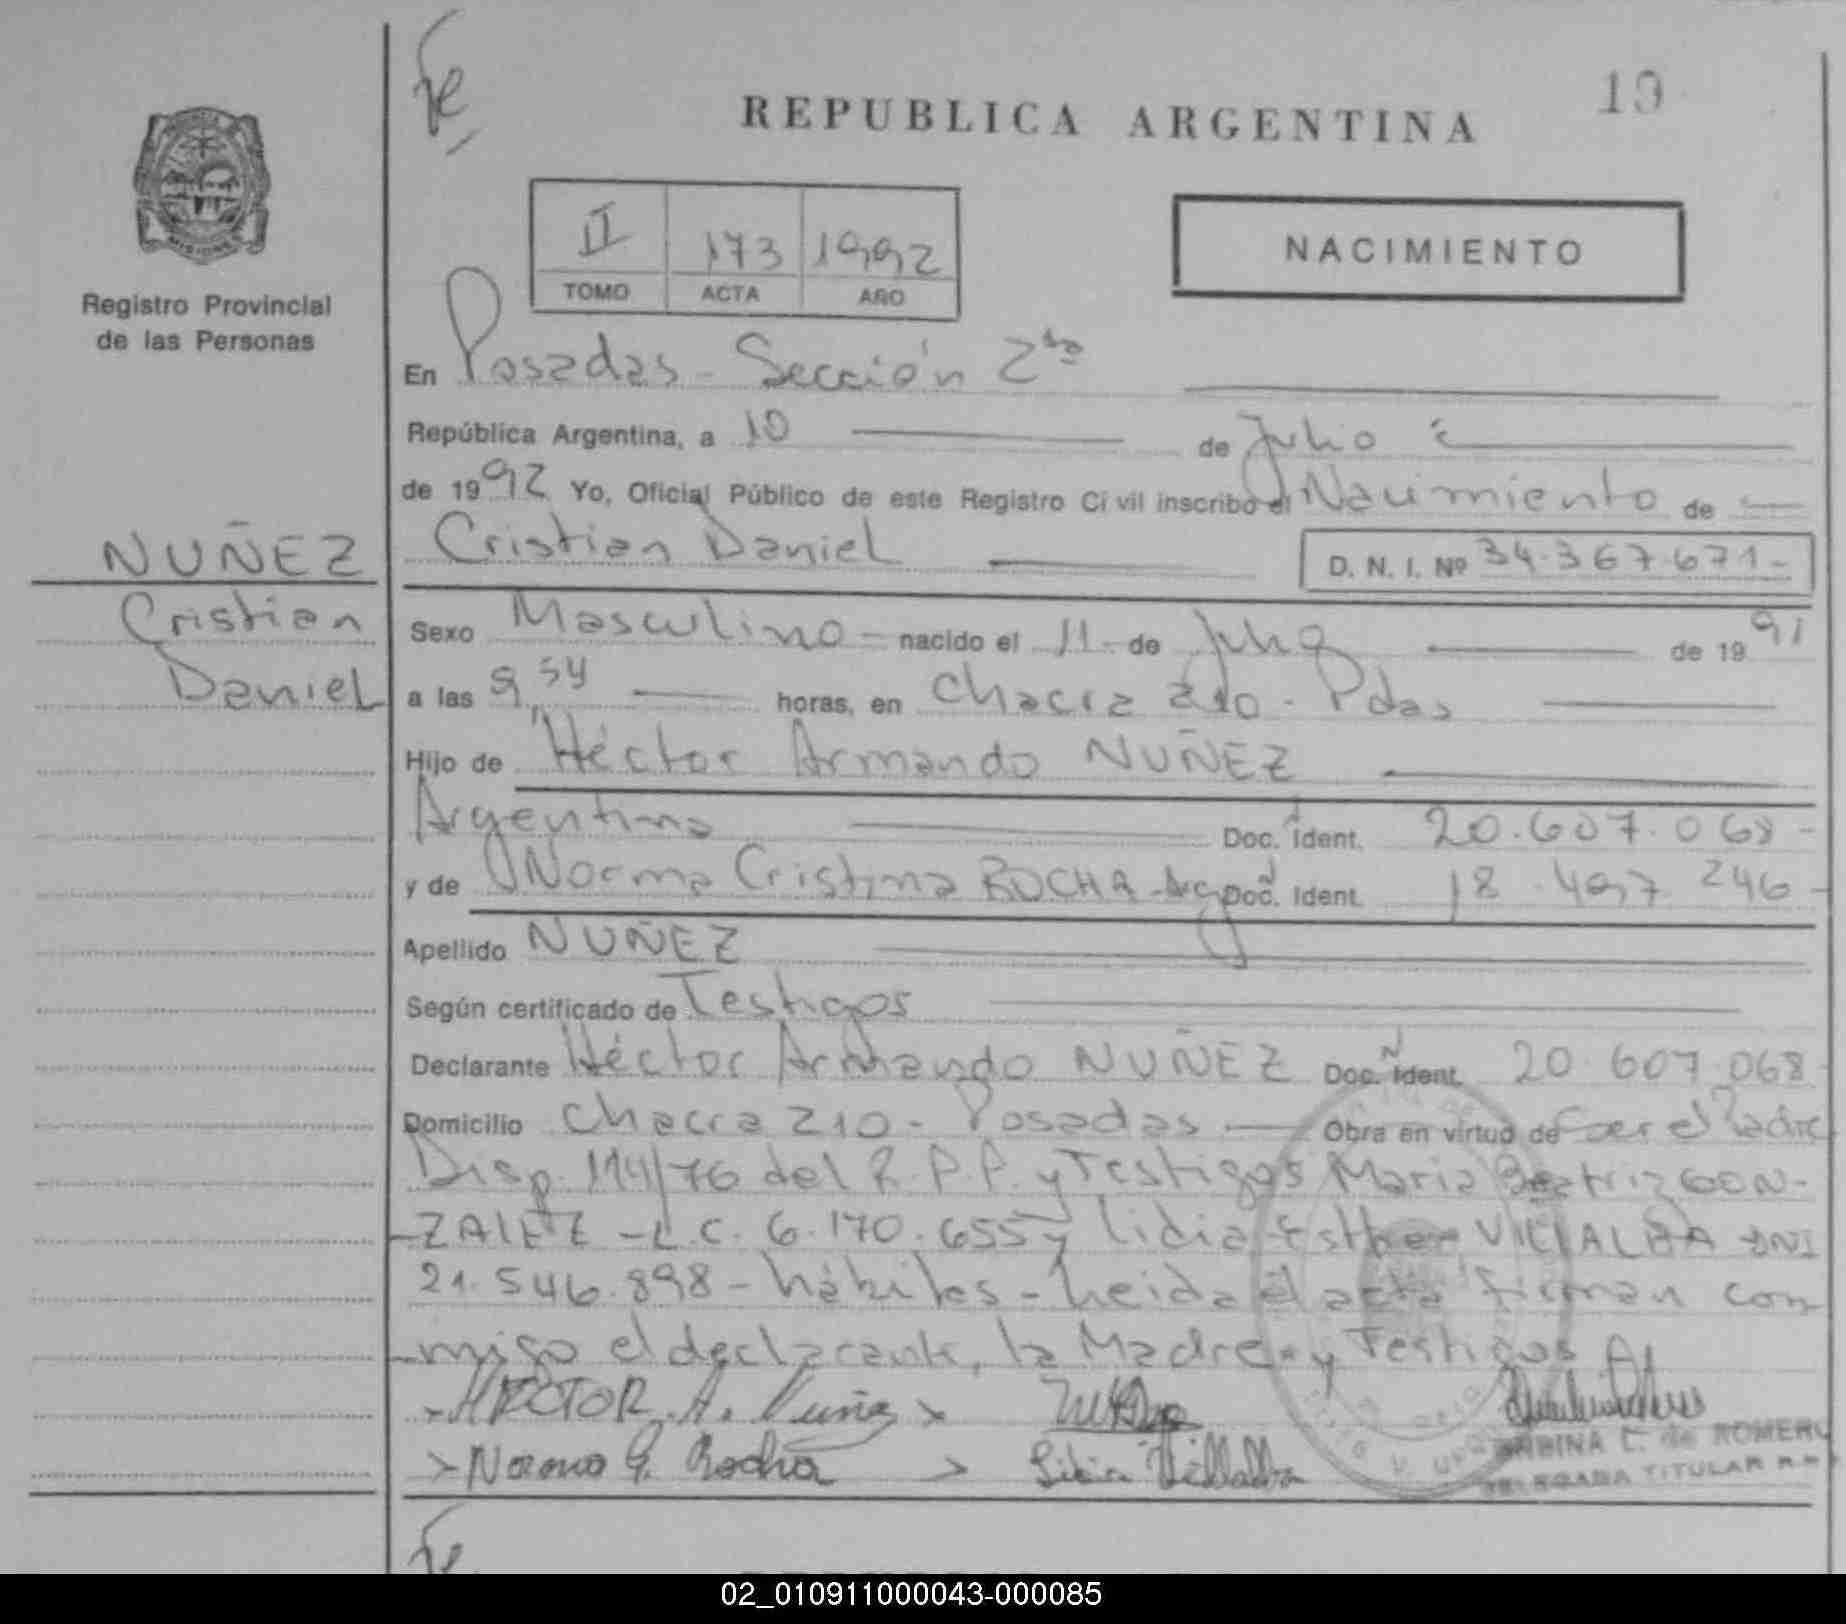 19
REPUBLICA ARGENTINA
II 173 1992
TOMO ACTA AÑO
NACIMIENTO
MISIONES
Registro Provincial
de las Personas
En Posadas - Sección 2da
República Argentina, a 10 de Julio
de 1992 Yo, Oficial Público de este Registro Civil inscribo el Nacimiento de
NUÑEZ
Cristian Daniel
D. N. I. Nº 34.367.671-
Cristian
Sexo Masculino - nacido el 11 - de Julio de 1991
Daniel
a las 9,54 horas, en Chacra 210 - Pdas
Hijo de Héctor Armando NUÑEZ
Argentino Doc. Ident. 20.607.068 -
y de Norma Cristina ROCHA - Arg Doc. Ident. 18.497.246 -
Apellido NUÑEZ
Según certificado de Testigos
Declarante Héctor Armando NUÑEZ Doc. Ident. 20.607.068
Domicilio Chacra 210 - Posadas Obra en virtud de ser el Padre
Disp. 114/76 del R.P.P. y Testigos Maria Beatriz GON-
-ZALEZ - L.C. 6.170.655 y Lidia Esther VILLALBA DNI
21.546.898 - hábiles - Leida el acta firman con-
-migo el declarante, la Madre y Testigos
HECTOR A. Nuñez
Norma C. Rocha Lidia Villalba
SABINA C. de ROMERO
DELEGADA TITULAR
02_010911000043-000085